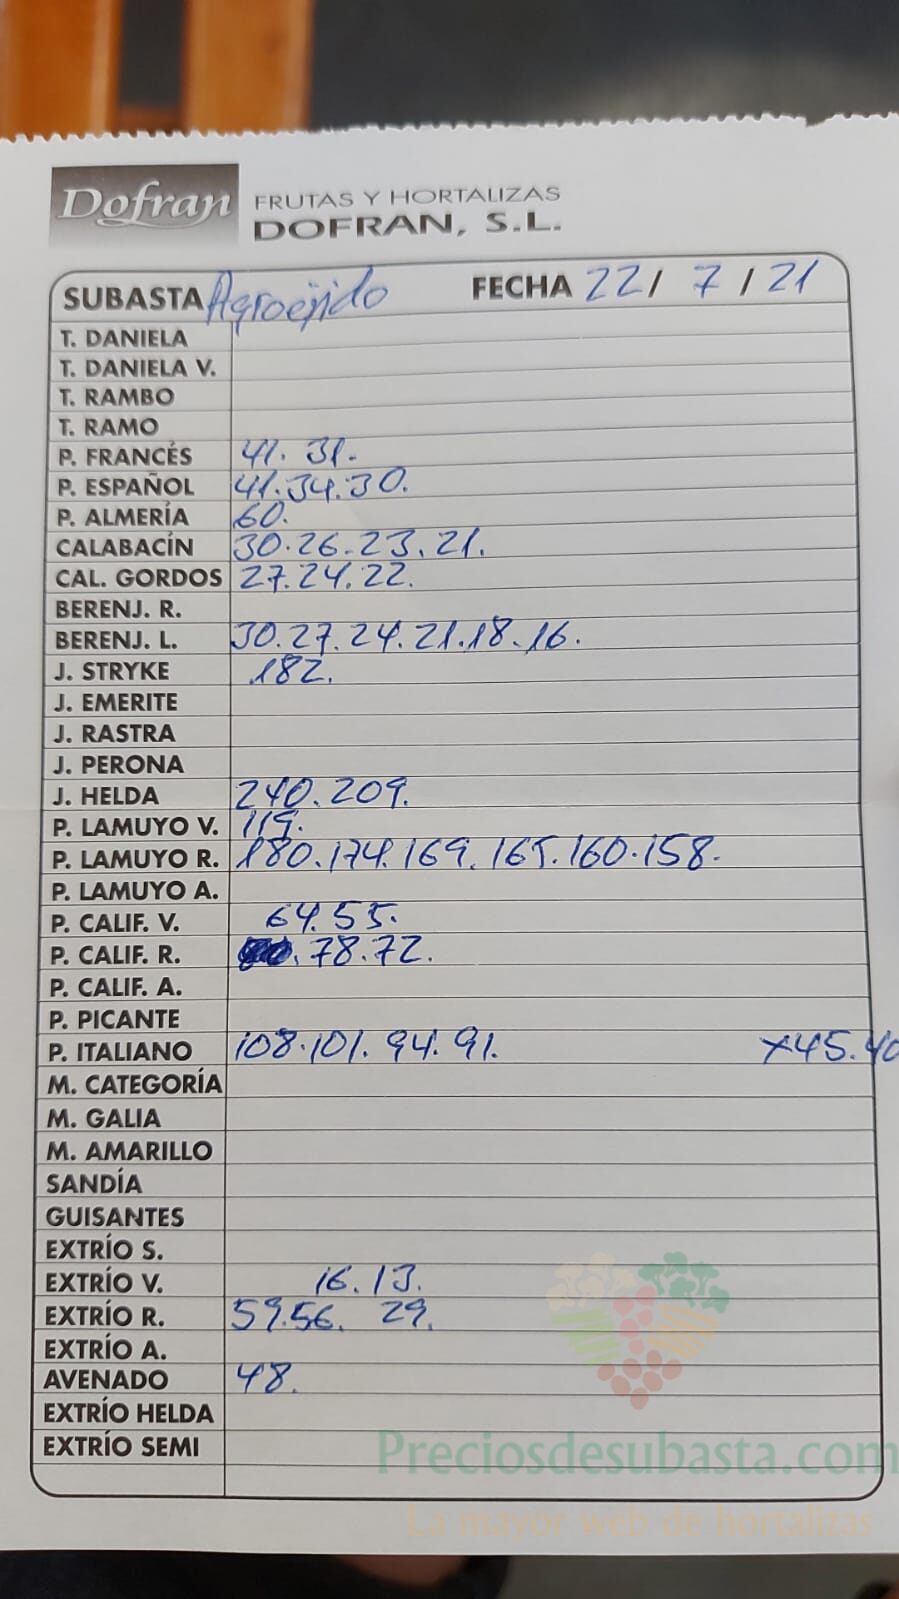 Dofran FRUTAS Y HORTALIZAS
DOFRAN, S.L.
SUBASTA Agroejido FECHA 22 / 7 / 21
T. DANIELA
T. DANIELA V.
T. RAMBO
T. RAMO
P. FRANCÉS 41. 31.
P. ESPAÑOL 41.34.30.
P. ALMERÍA 60.
CALABACÍN 30.26.23.21.
CAL. GORDOS 27.24.22.
BERENJ. R.
BERENJ. L. 30.27.24.21.18.16.
J. STRYKE 182.
J. EMERITE
J. RASTRA
J. PERONA
J. HELDA 240.209.
P. LAMUYO V. 119.
P. LAMUYO R. 180.174.169.165.160.158.
P. LAMUYO A.
P. CALIF. V. 64.55.
P. CALIF. R. .78.72.
P. CALIF. A.
P. PICANTE
P. ITALIANO 108.101.94.91. x45.40
M. CATEGORÍA
M. GALIA
M. AMARILLO
SANDÍA
GUISANTES
EXTRÍO S.
EXTRÍO V. 16.13.
EXTRÍO R. 59.56. 29.
EXTRÍO A.
AVENADO 48.
EXTRÍO HELDA
EXTRÍO SEMI
Preciosdesubasta.com
La mayor web de hortalizas